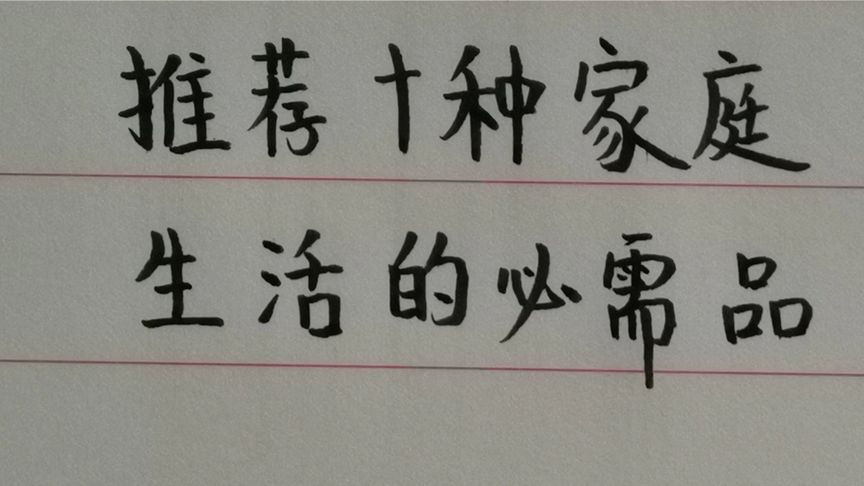 推荐十种家庭
生活的必需品